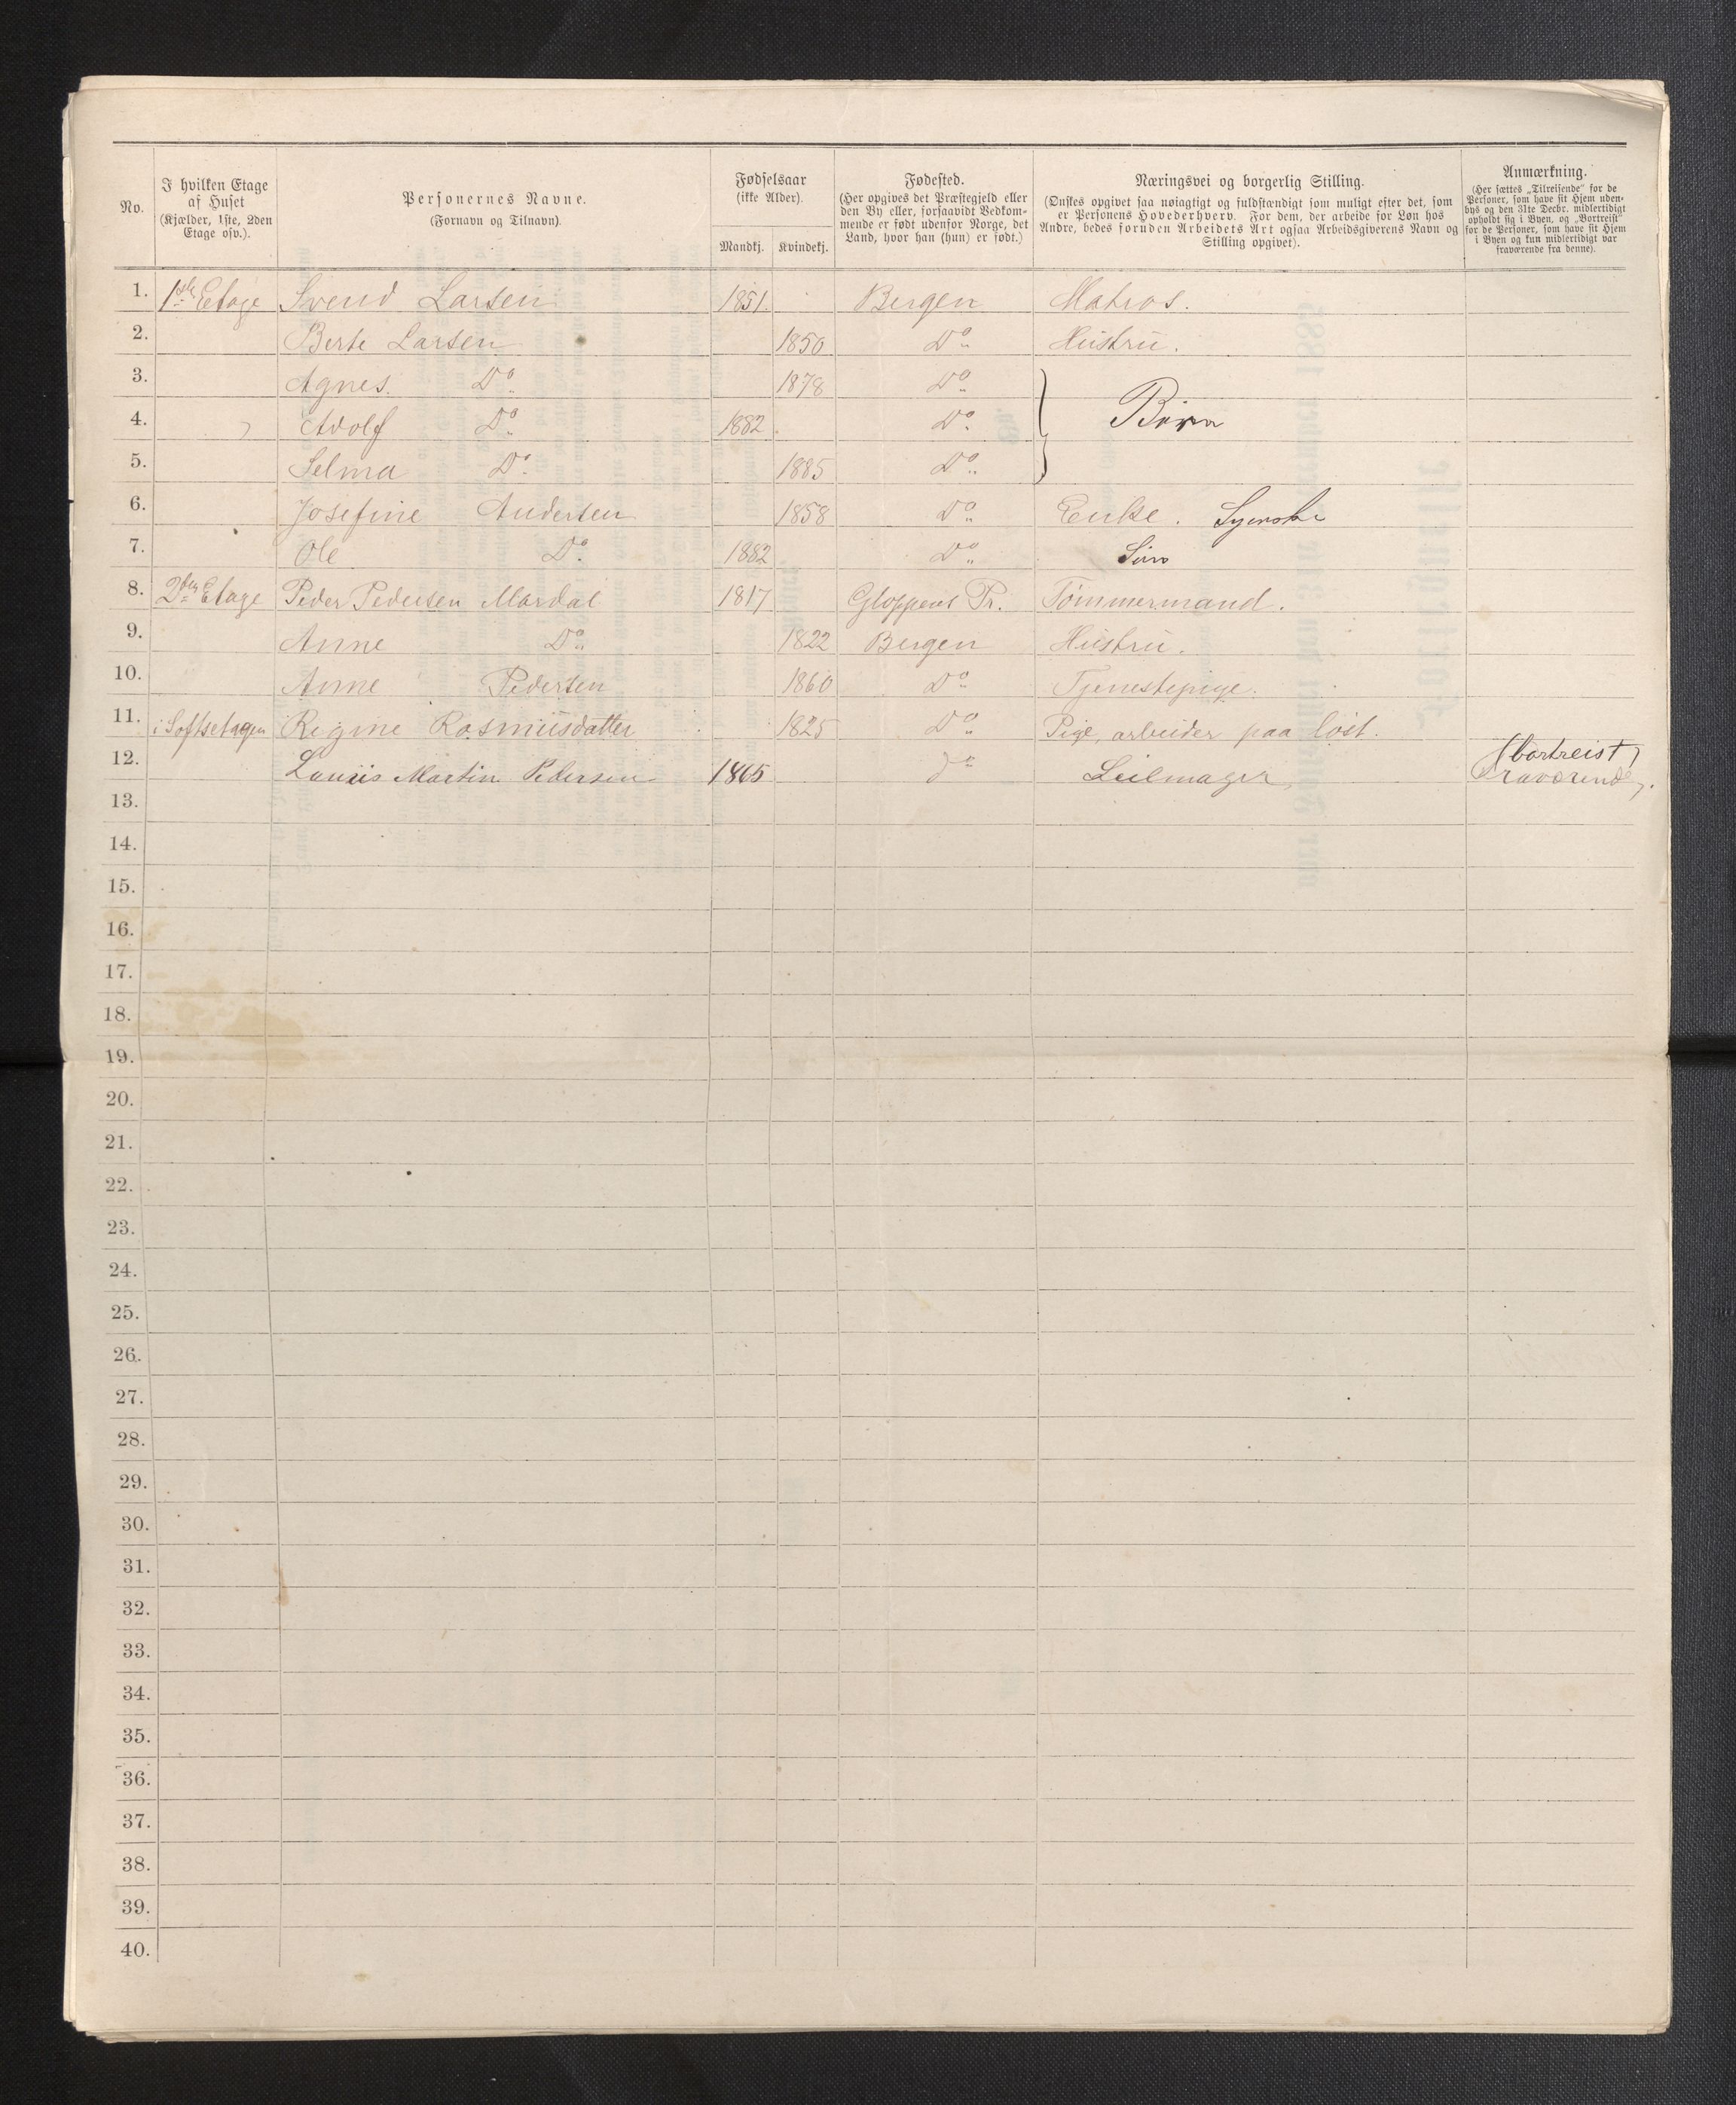 No.
I hvilken Etage
af Huset
(Kjælder, 1ste, 2den
Etage osv.).
Personernes Navne.
(Fornavn og Tilnavn).
Fødselsaar
(ikke Alder).
Mandkj.
Kvindekj.
Fødested.
(Her opgives det Præstegjeld eller
den By eller, forsaavidt Vedkom-
mende er født udenfor Norge, det
Land, hvor han (hun) er født.)
Næringsvei og borgerlig Stilling.
(Ønskes opgivet saa nøiagtigt og fuldstændigt som muligt efter det, som
er Personens Hovederhverv. For dem, der arbeide for Løn hos
Andre, bedes foruden Arbeidets Art ogsaa Arbeidsgiverens Navn og
Stilling opgivet).
Anmærkning.
(Her sættes „Tilreisende“ for de
Personer, som have sit Hjem uden-
bys og den 31te Decbr. midlertidigt
opholdt sig i Byen, og „Bortreist“
for de Personer, som have sit Hjem
i Byen og kun midlertidigt var
fraværende fra denne).
1. 1ste Etage Svend Larsen 1851. Bergen Matros.
2. Berte Larsen 1850 Do Hustru.
3. Agnes. Do 1878 Do
4. Adolf Do 1882 Do Børn
5. Selma Do 1885 Do
6. Josefine Andersen 1858 Do Enke. Syerske
7. Ole Do 1882 Do Søn
8. 2den Etage Peder Pedersen Mardal 1817 Gloppens Pr. Tømmermand.
9. Anne Do 1822 Bergen Hustru.
10. Anne Pedersen 1860 Do Tjenestepige.
11. i Loftsetagen Regine Rasmusdatter 1825 Do Pige, arbeider paa løst.
12. Lauris Martin Pedersen 1865 do Seilmager (bortreist)
Fraværende
13.
14.
15.
16.
17.
18.
19.
20.
21.
22.
23.
24.
25.
26.
27.
28.
29.
30.
31.
32.
33.
34.
35.
36.
37.
38.
39.
40.